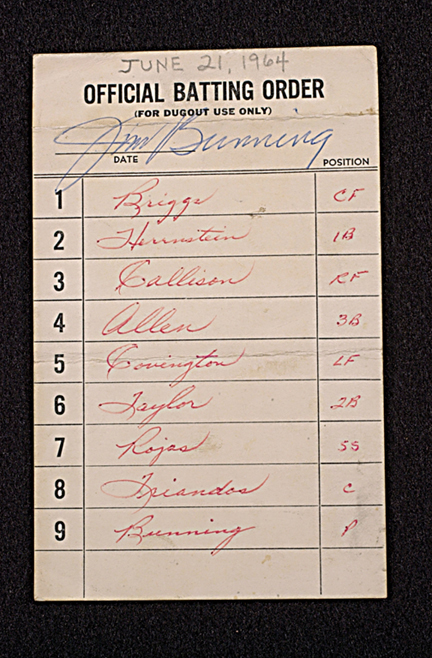 JUNE 21, 1964
OFFICIAL BATTING ORDER
(FOR DUGOUT USE ONLY)
Jim Bunning
DATE POSITION
1 Briggs CF
2 Herrnstein 1B
3 Callison RF
4 Allen 3B
5 Covington LF
6 Taylor 2B
7 Rojas SS
8 Triandos C
9 Bunning P